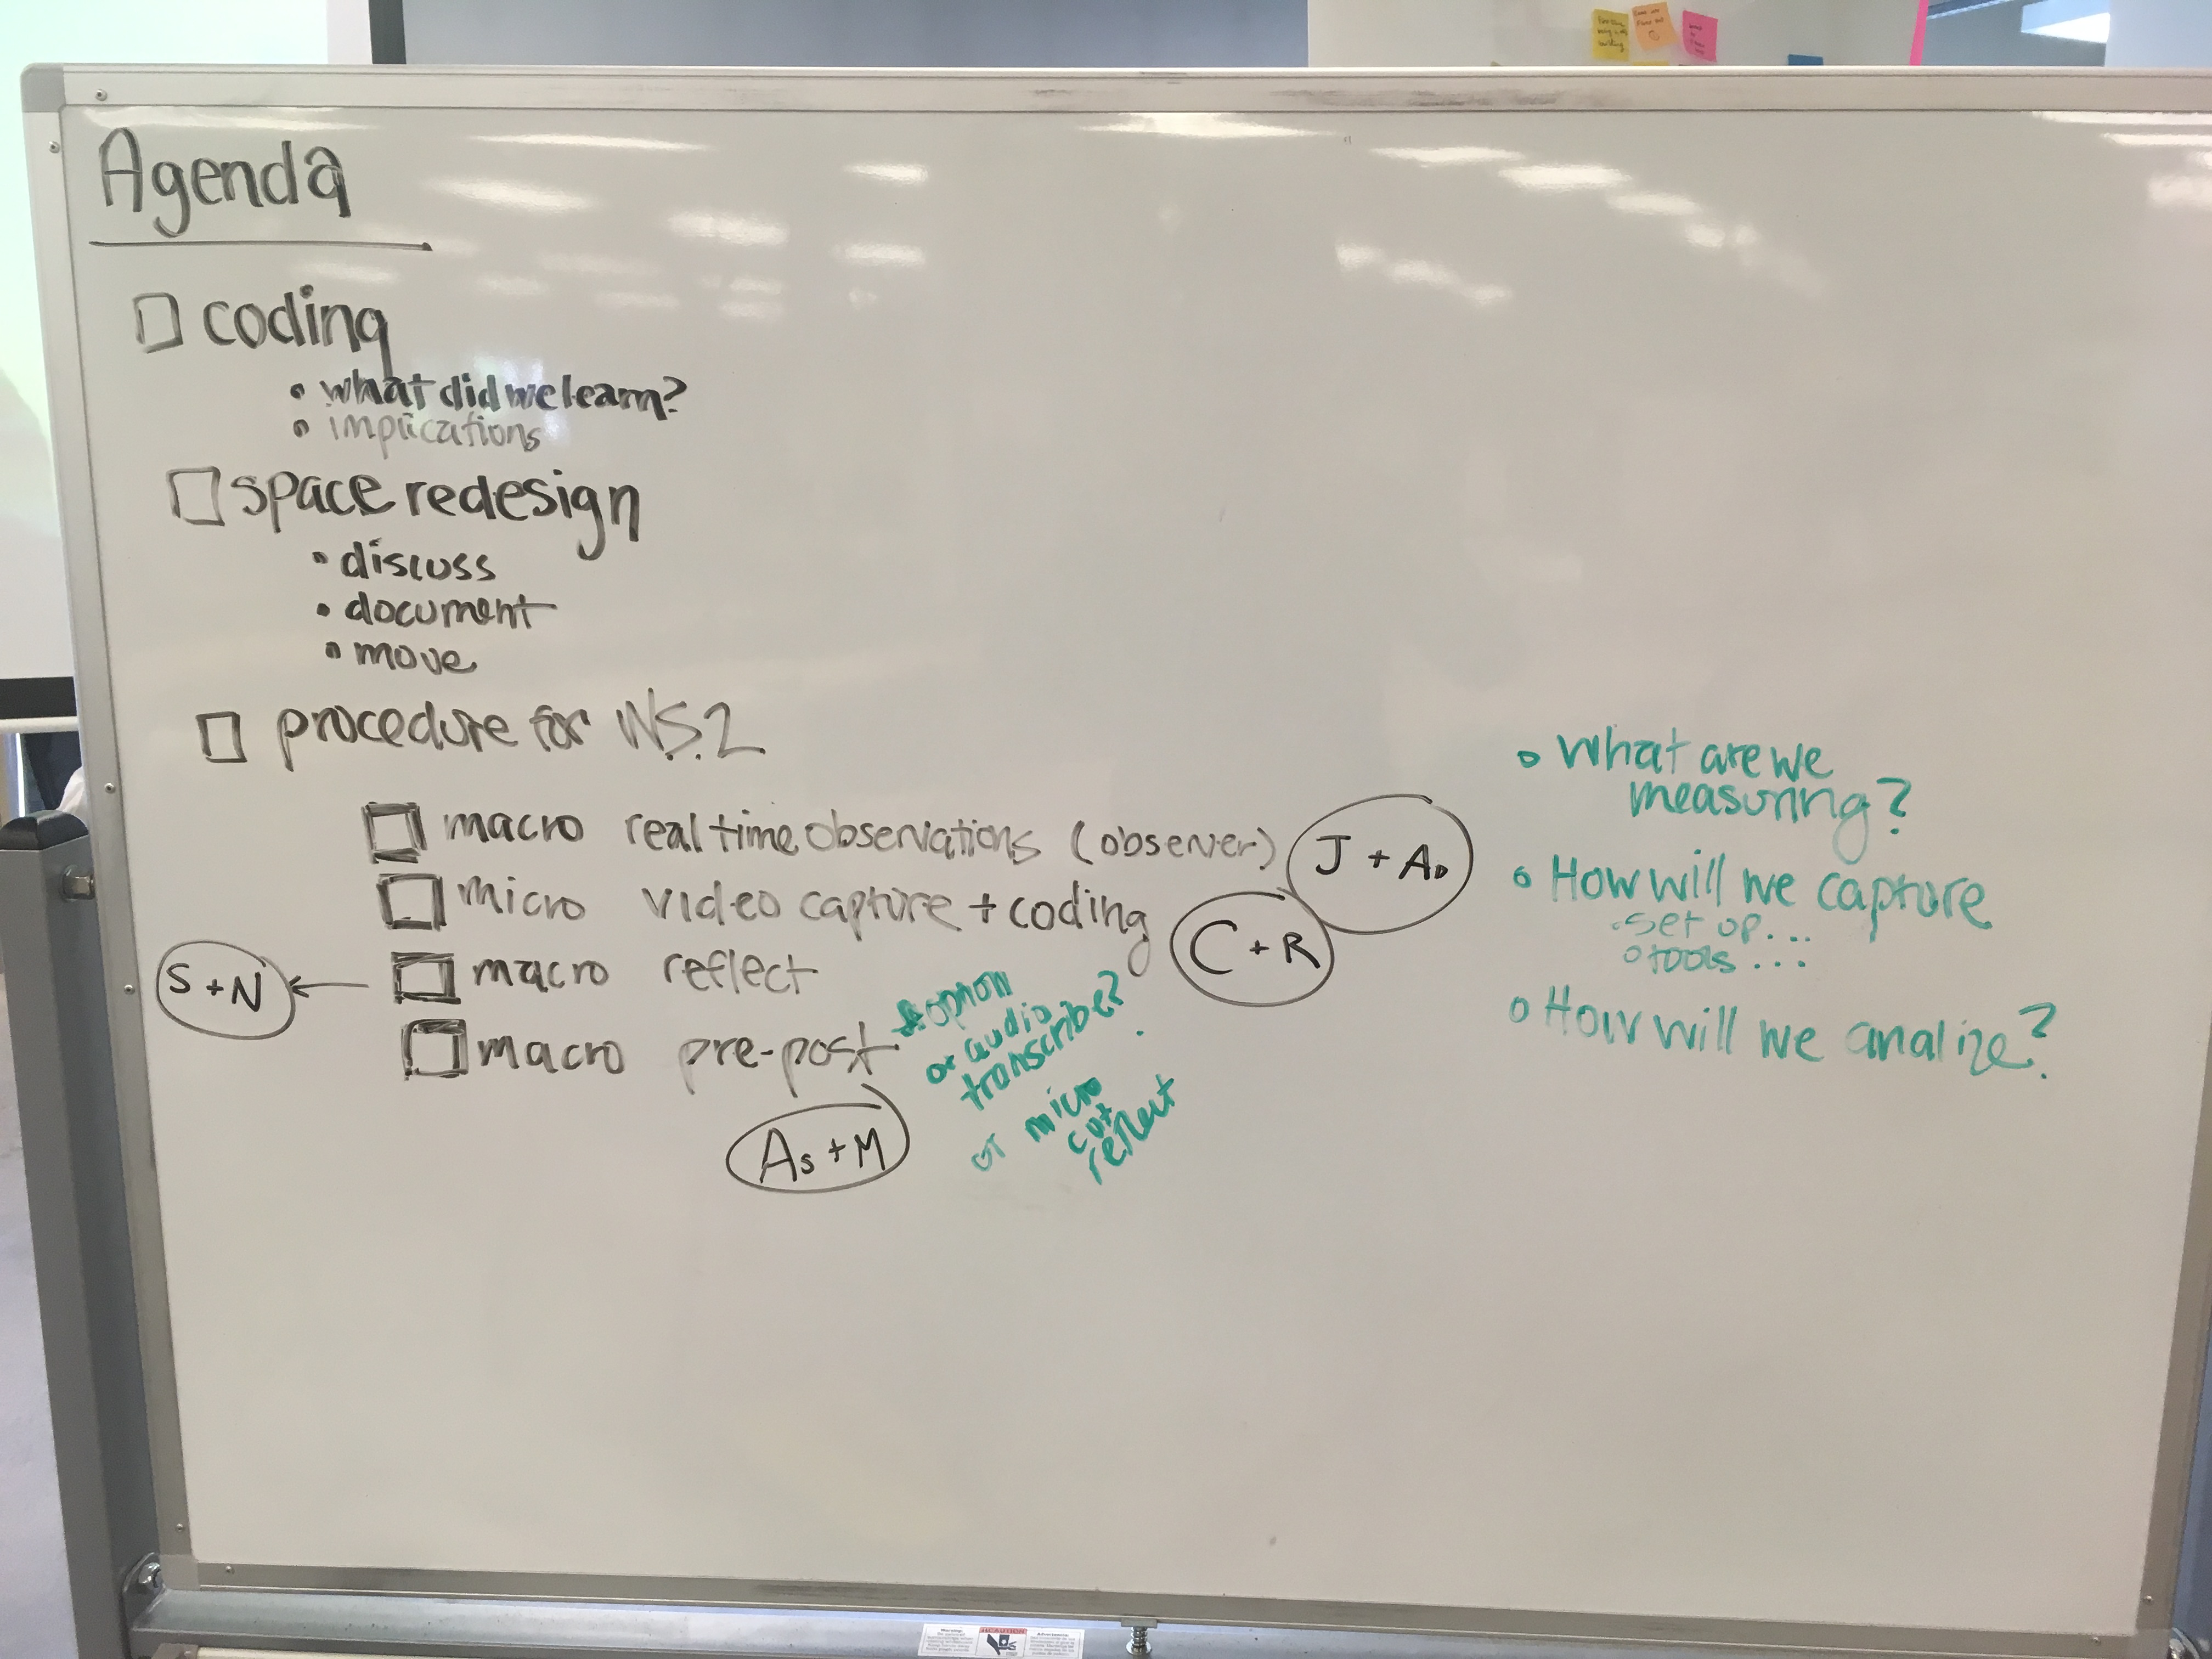 Agenda
coding
• what did we learn?
• implications
space redesign
• discuss
• document
• move
procedure for W.S.2
macro real time observations (observer)
J + AD
micro video capture + coding
C + R
macro reflect
S + N
macro pre-post
As + M
or audio
transcribe?
or micro
reflect
• What are we
measuring?
• How will we capture
• set up...
• tools...
• How will we analize?